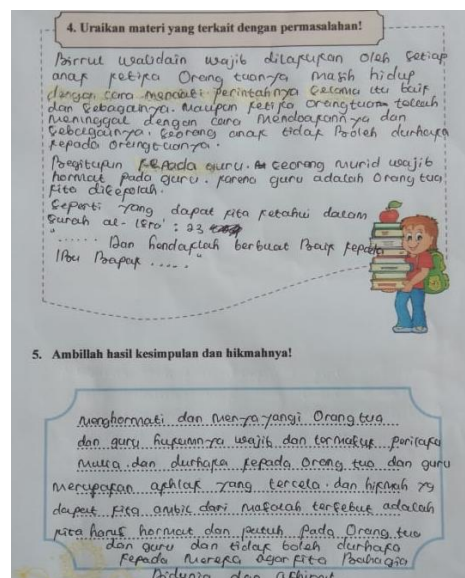 4. Uraikan materi yang terkait dengan permasalahan!
Birrul walidain wajib dilakukan oleh setiap
anak ketika orang tuanya masih hidup
dengan cara mentaati perintahnya selama itu baik
dan sebagainya. Maupun ketika orangtuanya telah
meninggal dengan cara mendoakannya dan
sebagainya. Seorang anak tidak boleh durhaka
kepada orangtuanya.
Begitupun kepada guru. seorang murid wajib
hormat pada guru. karena guru adalah orang tua
kita disekolah.
Seperti yang dapat kita ketahui dalam
surah al-Isra' : 23
"...... Dan hendaklah berbuat baik kepada
Ibu Bapak ....."
5. Ambillah hasil kesimpulan dan hikmahnya!
Menghormati dan menyayangi orang tua
dan guru hukumnya wajib dan termasuk perilaku
mulia. dan durhaka kepada orang tua dan guru
merupakan akhlak yang tercela. dan hikmah yg
dapat kita ambil dari masalah tersebut adalah
kita harus hormat dan patuh pada orang tua
dan guru dan tidak boleh durhaka
kepada mereka agar kita bahagia
Didunia dan akhirat